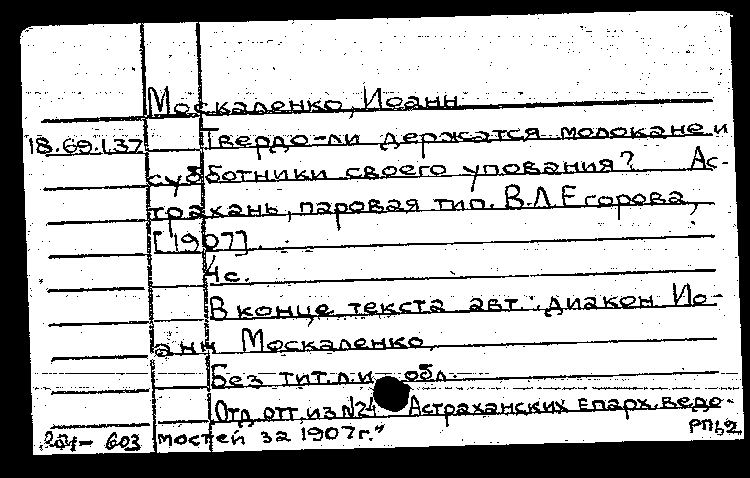 Москаленко, Иоанн
18.69.1.37 Твердо-ли держатся молокане и
субботники своего упования? Ас-
трахань, паровая тип. В.Л Егорова,
[1907].
4с.
В конце текста авт.: диакон Ио-
анн Москаленко
Без тит.л. и обл.
Отд. отт. из №24 Астраханских епарх. ведо-
603 мостей за 1907г."